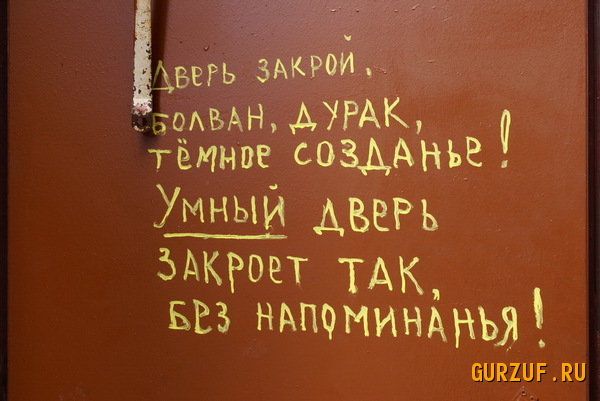 ДВЕРЬ ЗАКРОЙ,
БОЛВАН, ДУРАК,
ТЁМНОЕ СОЗДАНЬЕ!
УМНЫЙ ДВЕРЬ
ЗАКРОЕТ ТАК,
БЕЗ НАПОМИНАНЬЯ!
GURZUF.RU